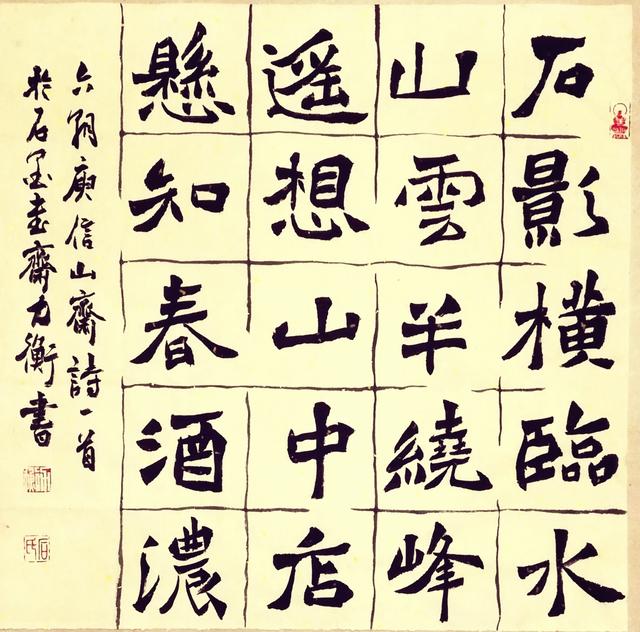 石影横臨水
山雲半繞峰
遥想山中店
懸知春酒濃
六朝庾信山齋詩一首
於石墨书齋力衡書
石氏